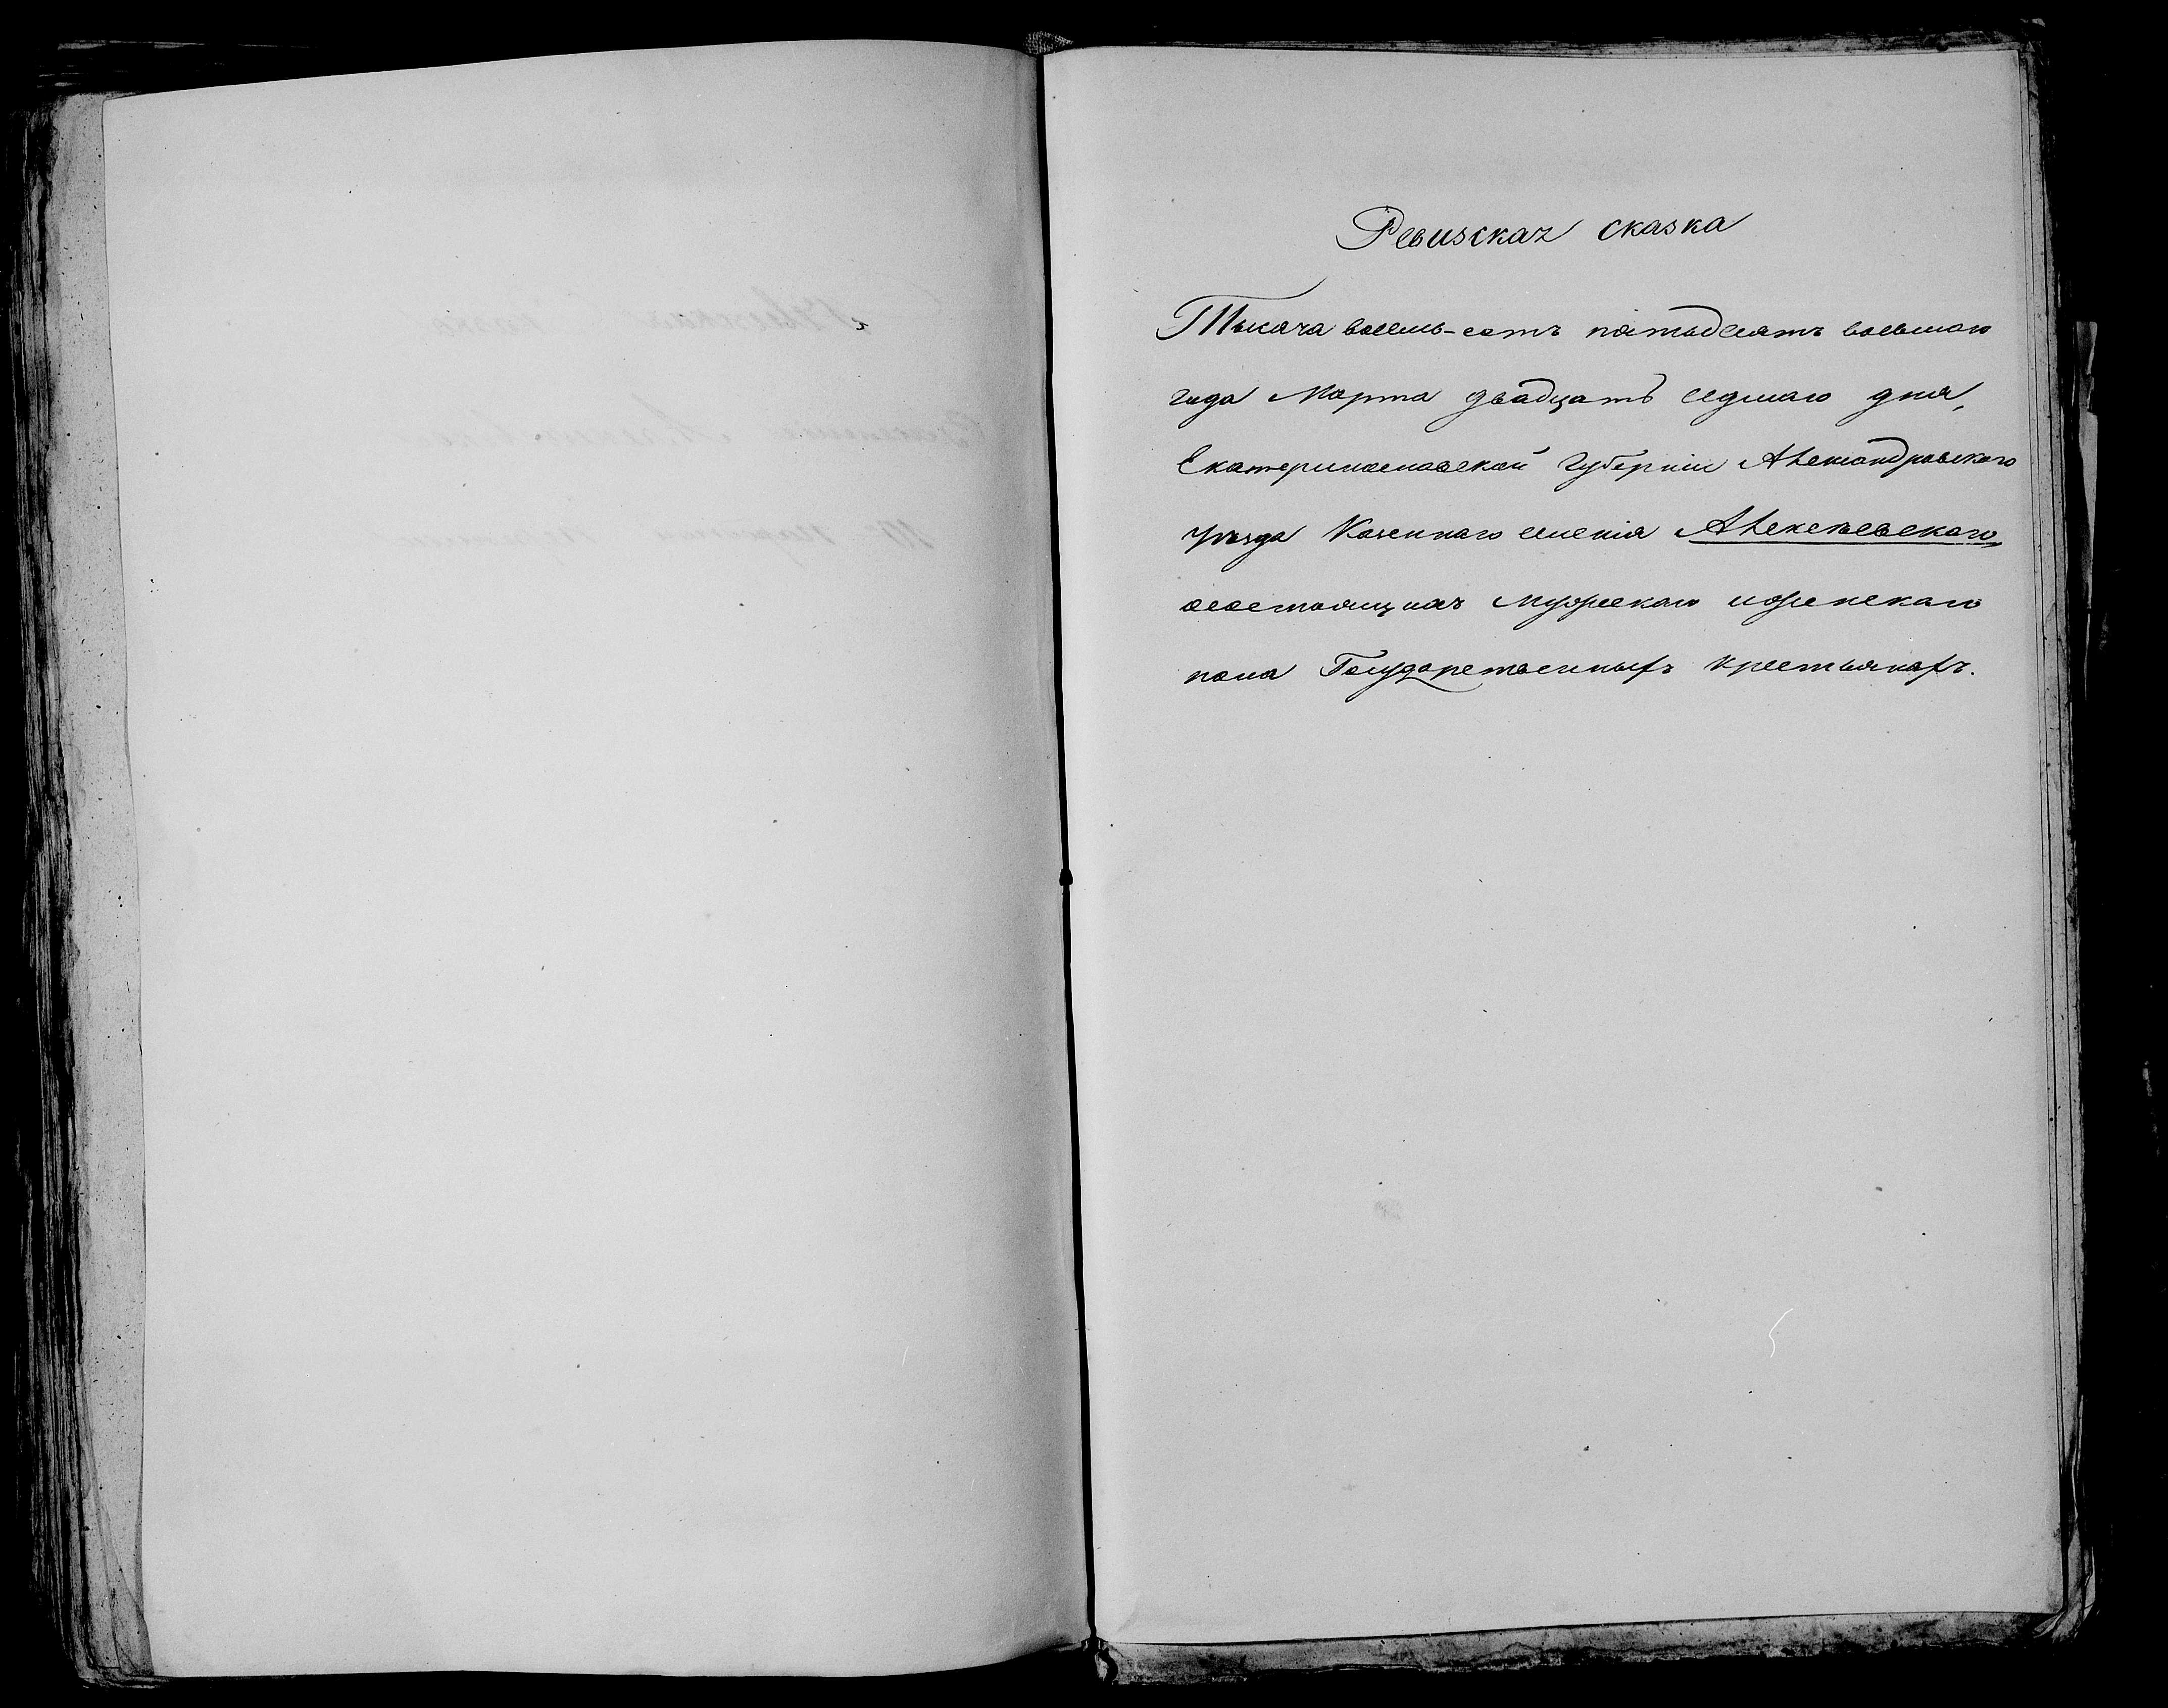 Ревизская сказка
Тысяча восемь-сотъ пятьдесятъ восьмаго
года Марта двадцать седмаго дня,
Екатеринославской Губерніи Александровскаго
уѣзда Казеннаго селенія Алексѣевскаго
о состоящихъ мужескаго и женскаго
пола Государственныхъ крестьянахъ.